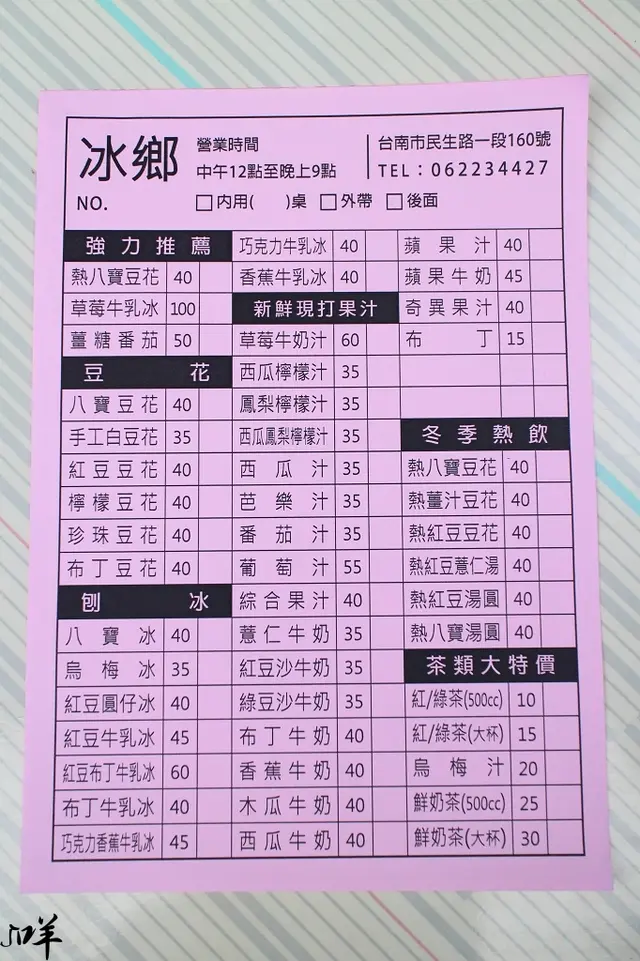 冰鄉
營業時間
中午12點至晚上9點
台南市民生路一段160號
TEL：062234427
NO.
□內用( )桌 □外帶 □後面
強力推薦
熱八寶豆花 40
草莓牛乳冰 100
薑糖番茄 50
豆花
八寶豆花 40
手工白豆花 35
紅豆豆花 40
檸檬豆花 40
珍珠豆花 40
布丁豆花 40
刨冰
八寶冰 40
烏梅冰 35
紅豆圓仔冰 40
紅豆牛乳冰 45
紅豆布丁牛乳冰 60
布丁牛乳冰 40
巧克力香蕉牛乳冰 45
巧克力牛乳冰 40
香蕉牛乳冰 40
新鮮現打果汁
草莓牛奶汁 60
西瓜檸檬汁 35
鳳梨檸檬汁 35
西瓜鳳梨檸檬汁 35
西瓜汁 35
芭樂汁 35
番茄汁 35
葡萄汁 55
綜合果汁 40
薏仁牛奶 35
紅豆沙牛奶 35
綠豆沙牛奶 35
布丁牛奶 40
香蕉牛奶 40
木瓜牛奶 40
西瓜牛奶 40
蘋果汁 40
蘋果牛奶 45
奇異果汁 40
布丁 15
冬季熱飲
熱八寶豆花 40
熱薑汁豆花 40
熱紅豆豆花 40
熱紅豆薏仁湯 40
熱紅豆湯圓 40
熱八寶湯圓 40
茶類大特價
紅/綠茶(500cc) 10
紅/綠茶(大杯) 15
烏梅汁 20
鮮奶茶(500cc) 25
鮮奶茶(大杯) 30